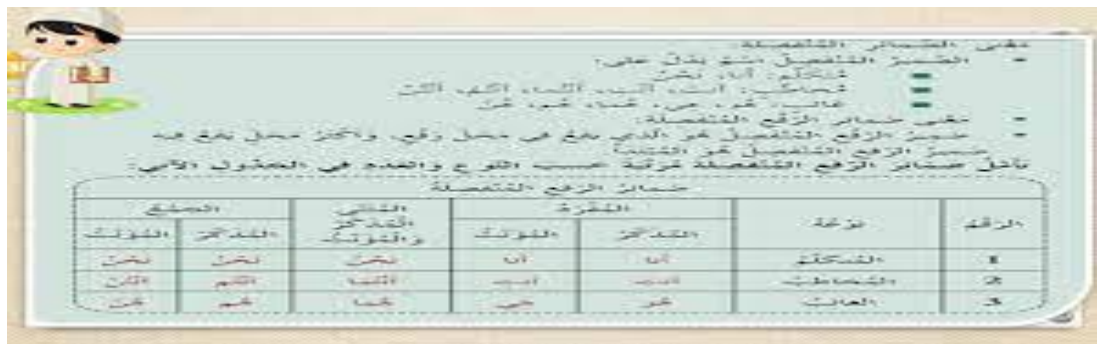 معنى الضمائر المنفصلة:
- الضمير المنفصل اسم يدل على:
متكلم: أنا، نحن
مخاطب: أنتَ، أنتِ، أنتما، أنتم، أنتن
غائب: هو، هي، هما، هم، هن
- معنى ضمائر الرفع المنفصلة:
- ضمير الرفع المنفصل هو الذي يقع في محل رفع، وأكثر محل يقع فيه
ضمير الرفع المنفصل هو المبتدأ
تأمل ضمائر الرفع المنفصلة مرتبة حسب النوع والعدد في الجدول الآتي:
ضمائر الرفع المنفصلة
الرقم نوعه المفرد المثنى الجمع
المذكر المؤنث المذكر والمؤنث المذكر المؤنث
1 المتكلم أنا أنا نحن نحن نحن
2 المخاطب أنتَ أنتِ أنتما أنتم أنتن
3 الغائب هو هي هما هم هن